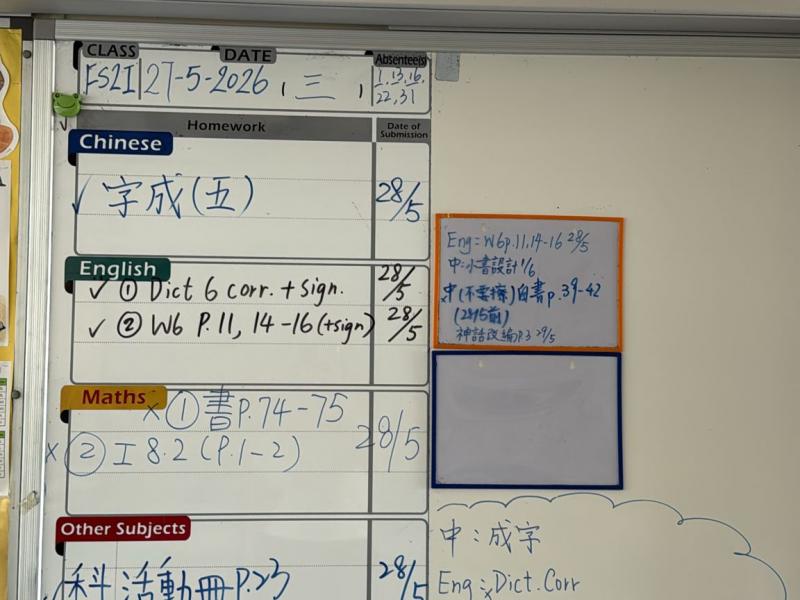 CLASS DATE Absentee(s)
FS2I 27-5-2026, 三, 1, 13, 16, 22, 31
Homework Date of Submission
Chinese
✓ 字成(五) 28/5
English
✓ ① Dict 6 corr. + sign. 28/5
✓ ② W6 P.11, 14-16 (+sign) 28/5
Maths
× ① 書P.74-75
× ② 工 8.2 (P.1-2) 28/5
Other Subjects
✓ 科 活動冊 P.23 28/5
Eng: W6p.11,14-16 28/5
中:小書設計 1/6
中(不要擦)白書p.39-42
(28/5前)
神話改編P.3 29/5
中:成字
Eng:× Dict. Corr